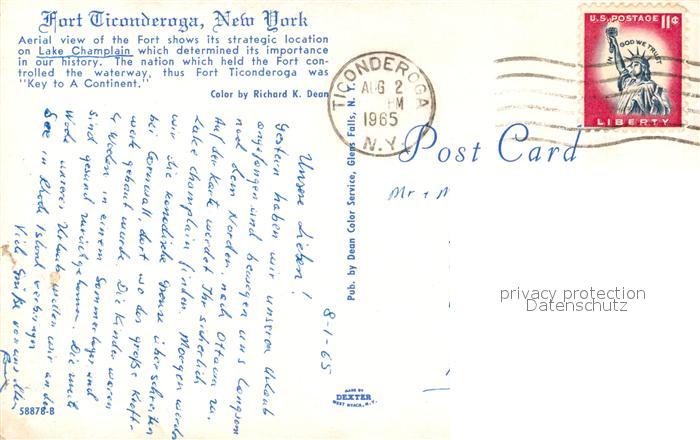 Fort Ticonderoga, New York
Aerial view of the Fort shows its strategic location
on Lake Champlain which determined its importance
in our history. The nation which held the Fort con-
trolled the waterway, thus Fort Ticonderoga was
"Key to A Continent."
Color by Richard K. Dean
TICONDEROGA
AUG 2
PM
1965
N.Y.
U.S. POSTAGE 11¢
IN GOD WE TRUST
LIBERTY
Post Card
Mr + M
8-1-65
Unsere Lieben!
Gestern haben wir unseren Urlaub
angefangen und bewegen uns langsam
nach dem Norden, nach Ottawa zu.
Auf der Karte werdet Ihr sicherlich
Lake Champlain finden. Morgen werden
wir die kanadische Grenze überschreiten
bei Cornwall, dort wo das große Kraft-
werk gebaut wurde. Die Kinder waren
Wochen in einem Sommerlager und
sind gesund zurückgekommen. Die zweite
Woche unseres Urlaubs wollen wir an der
See in Rhode Island verbringen
Viele Grüße von uns allen
Pub. by Dean Color Service, Glens Falls, N. Y.
MADE BY
DEXTER
WEST NYACK, N.Y.
58878-B
privacy protection
Datenschutz